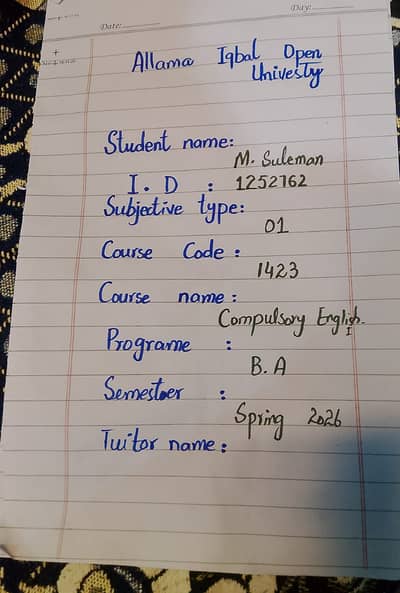 Day:
Date:
Allama Iqbal Open
Univesty
Student name:
M. Suleman
I. D : 1252762
Subjective type:
01
Course Code :
1423
Course name :
Compulsory English.
I
Programe :
B. A
Semestoer :
Spring 2026
Tuitor name :